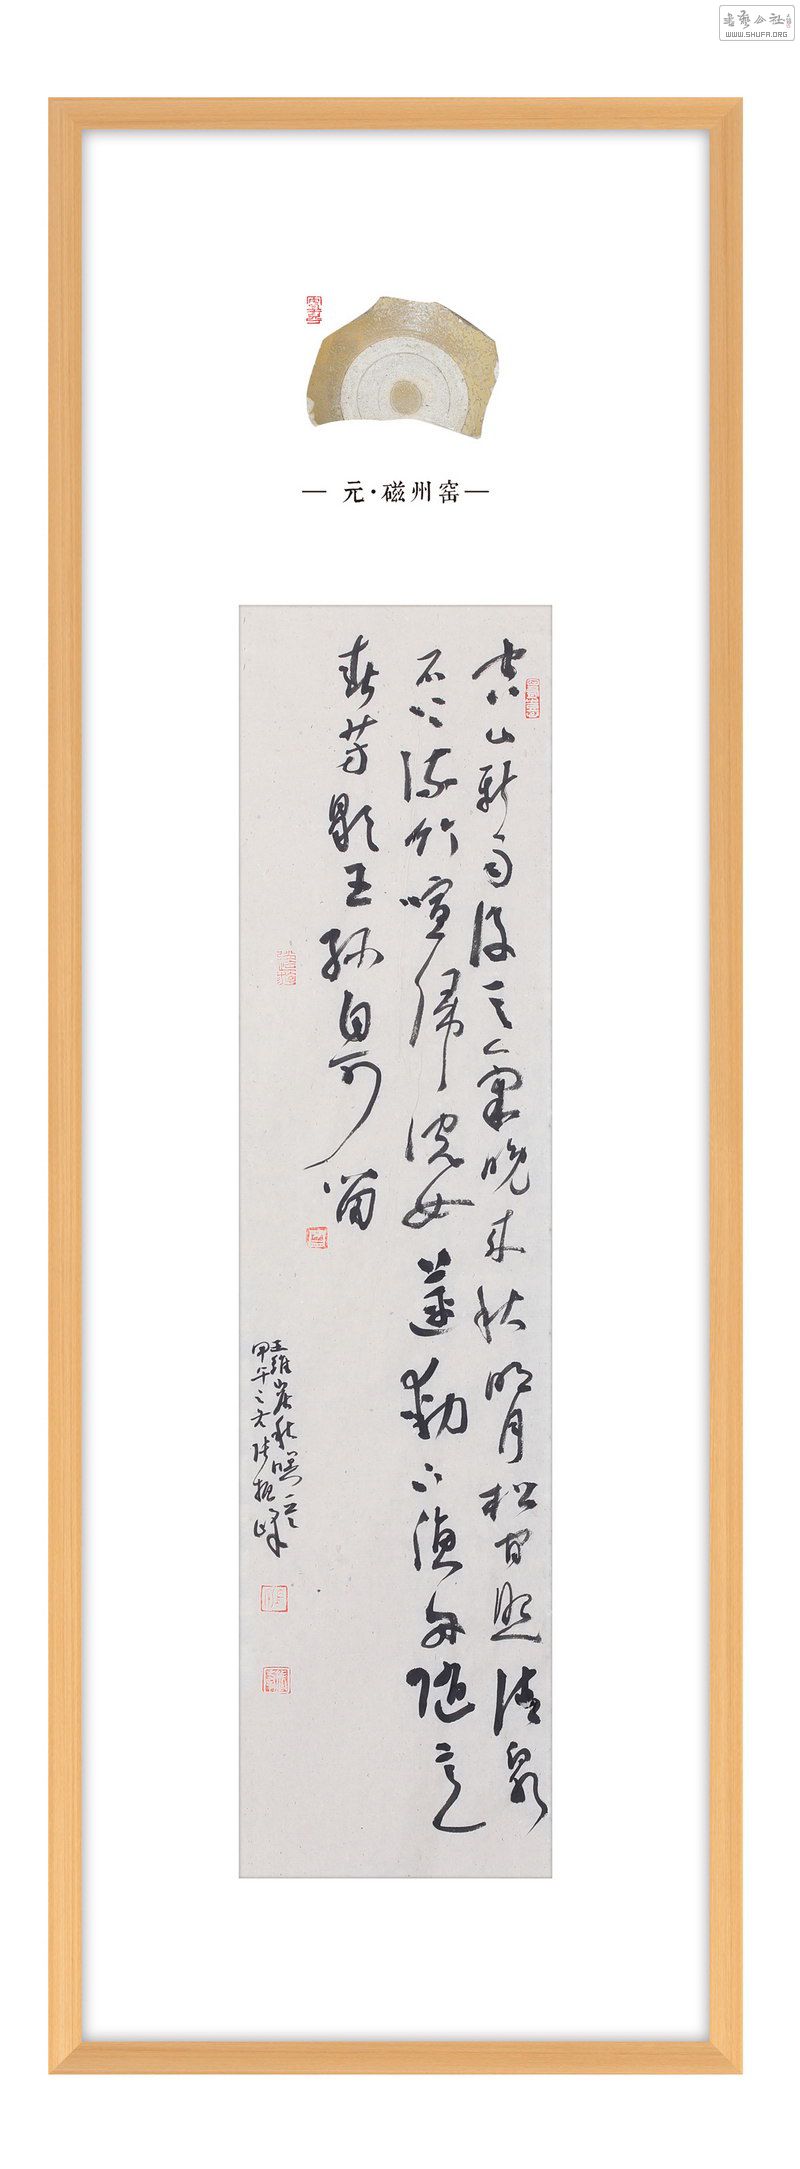 書藝公社
WWW.SHUFA.ORG
元·磁州窑
空山新雨後天氣晚来秋明月松間照清泉
石上流竹喧歸浣女蓮動下漁舟隨意
春芳歇王孫自可留
王維山居秋暝
甲午之張振峰